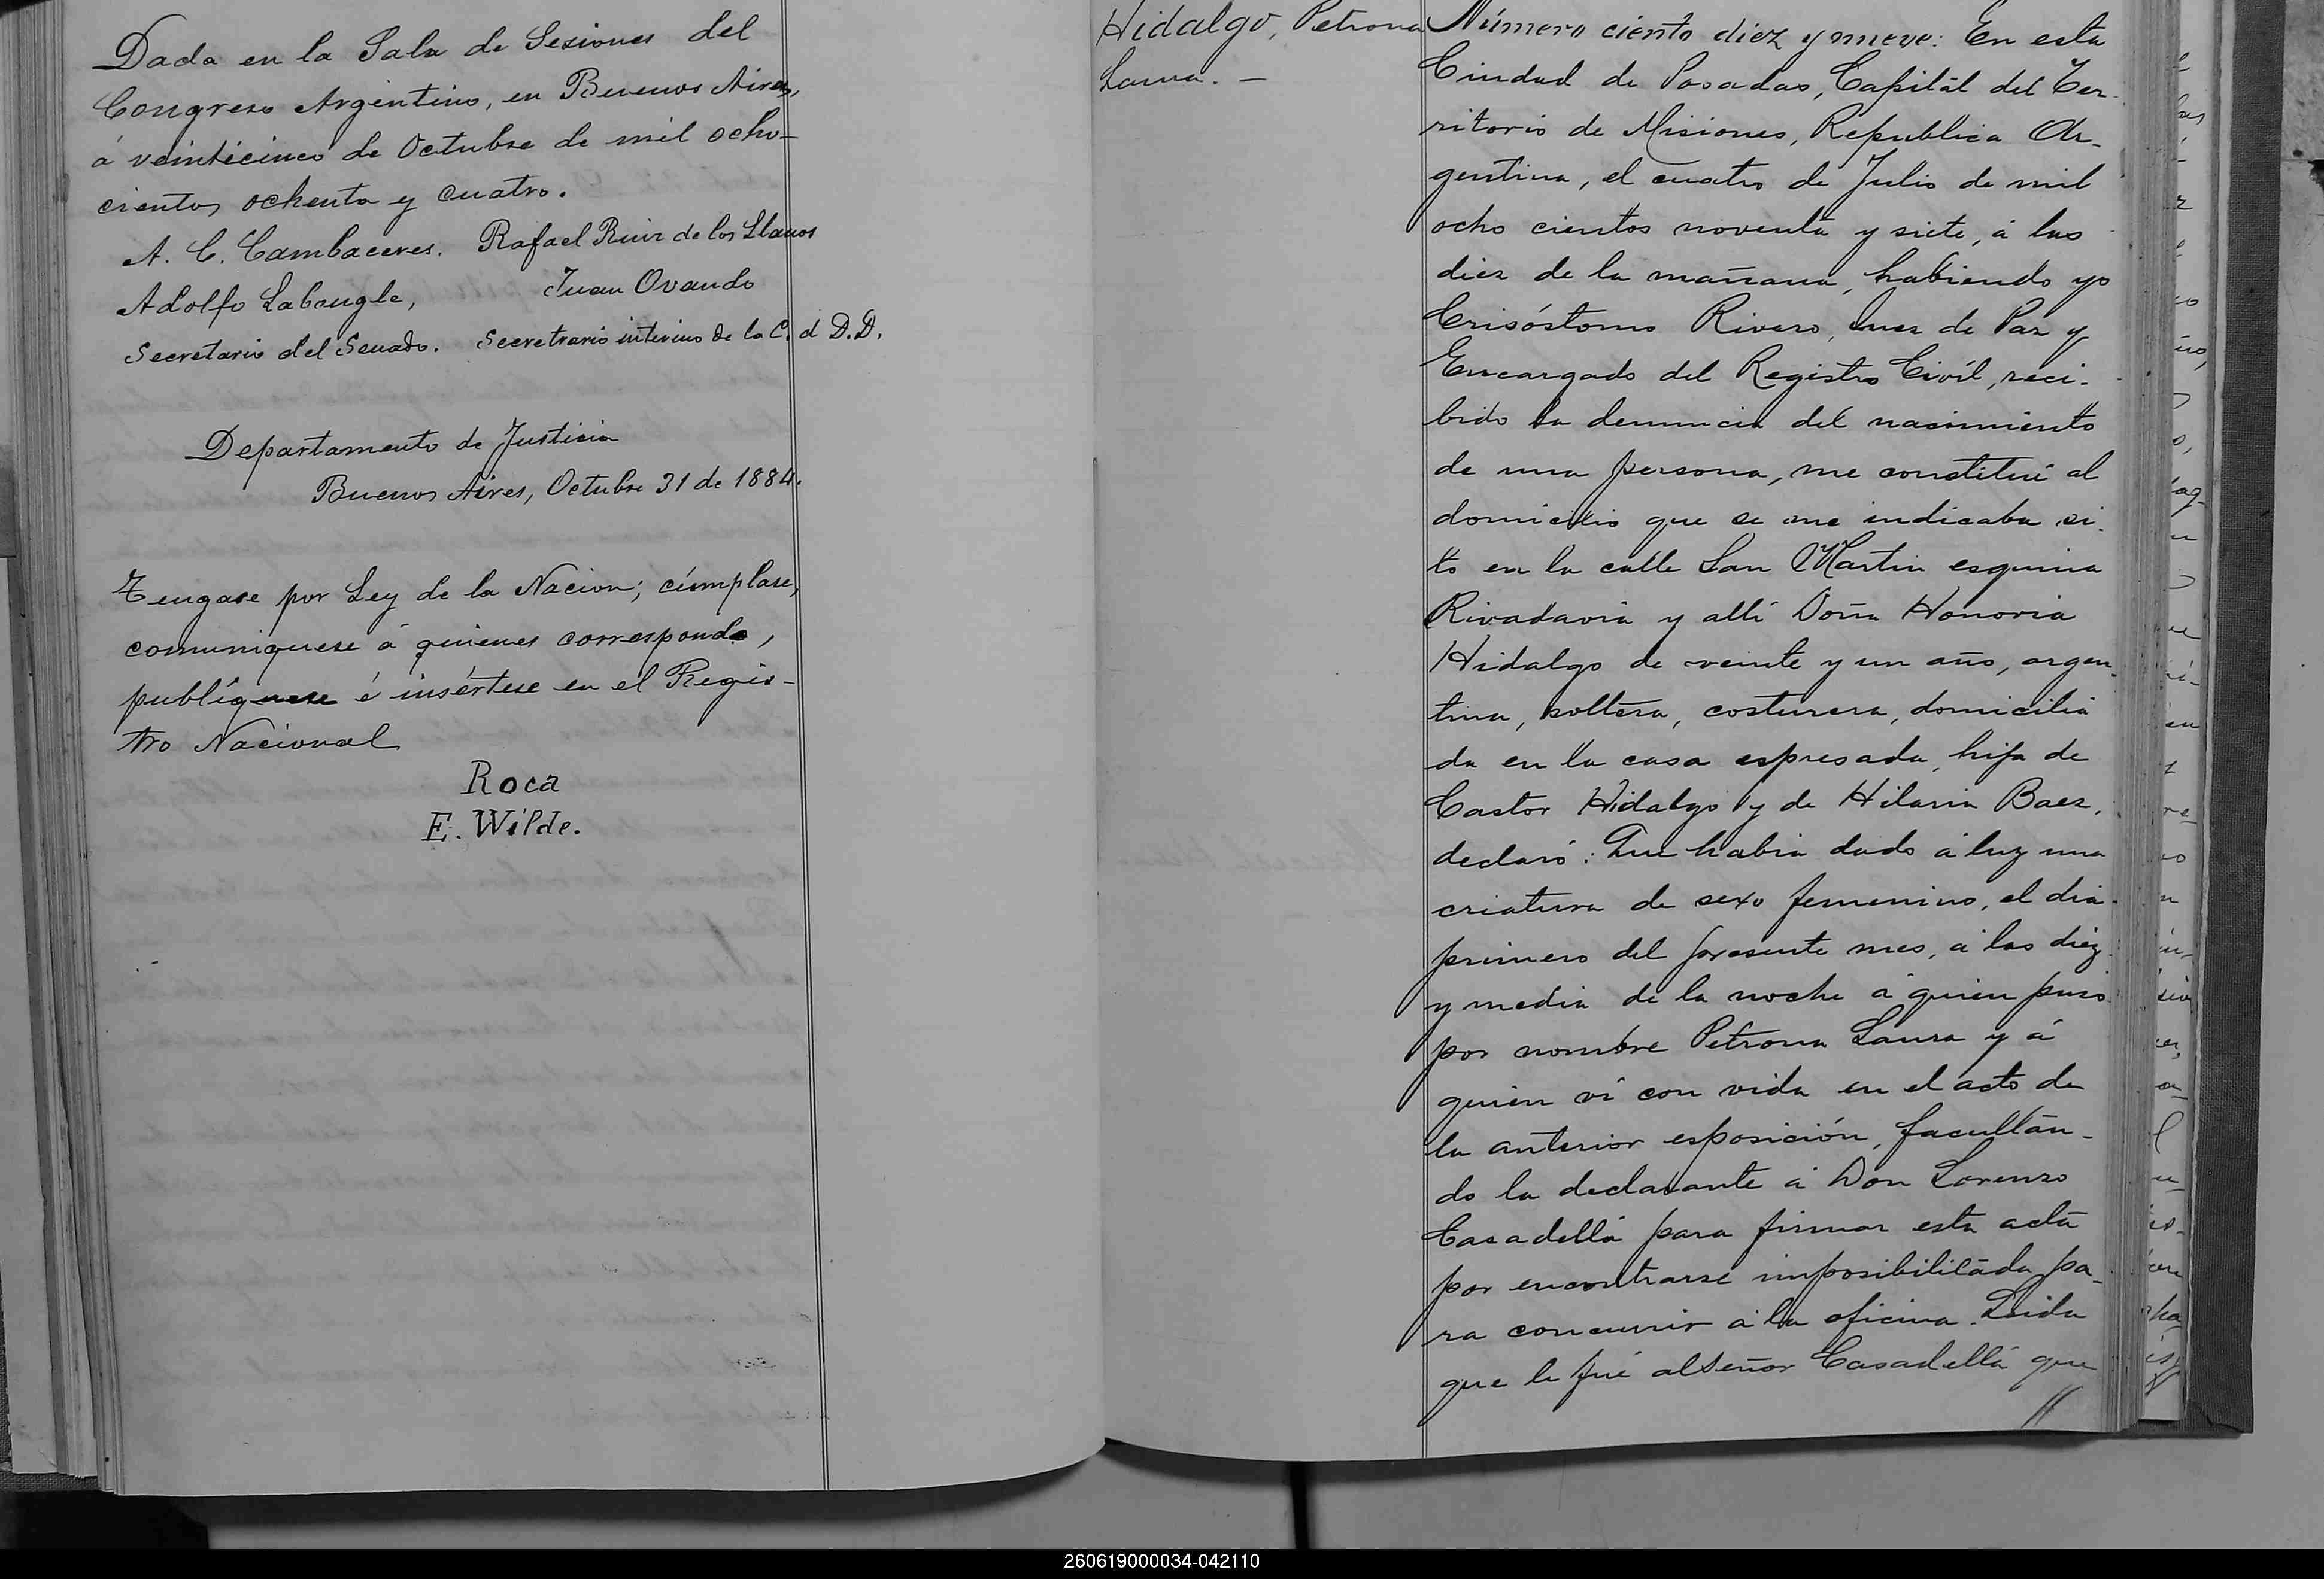 Dada en la Sala de Sesiones del
Congreso Argentino, en Buenos Aires,
á veinticinco de Octubre de mil ocho-
cientos ochenta y cuatro.
A. C. Cambaceres. Rafael Ruiz de los Llanos
Adolfo Labougle, Juan Ovando
Secretario del Senado. Secretrario interino de la C. d D.D.
Departamento de Justicia
Buenos Aires, Octubre 31 de 1884.
Tengase por Ley de la Nacion; cúmplase,
comuniquese á quienes corresponda,
publíquese é insértese en el Regis-
tro Nacional
Roca
E. Wilde.
Hidalgo, Petrona
Laura. –
Número ciento diez y nueve: En esta
Ciudad de Posadas, Capitál del Ter-
ritorio de Misiones, Republica Ar-
gentina, el cuatro de Julio de mil
ocho cientos noventa y siete, á las
diez de la mañana, habiendo yo
Crisóstomo Rivero, Juez de Paz y
Encargado del Registro Civíl, reci-
bido la denuncia del nacimiento
de una persona, me constituí al
domicilio que se me indicaba si-
to en la calle San Martin esquina
Rivadavia y allí Doña Honoria
Hidalgo de veinte y un año, argen-
tina, soltera, costurera, domicilia
da en la casa espresada, hija de
Castor Hidalgo y de Hilaria Baez,
declaró: Que habia dado á luz una
criatura de sexo femenino, el dia
primero del presente mes, á las diez
y media de la noche á quien puso
por nombre Petrona Laura y á
quien ví con vida en el acto de
la anterior esposición, facultán-
do la declarante á Don Lorenzo
Casadellá para firmar esta acta
por encontrarse imposibilitada pa-
ra concurrir á la oficina. Leida
que le fué al Señor Casadellá que
//
260619000034-042110